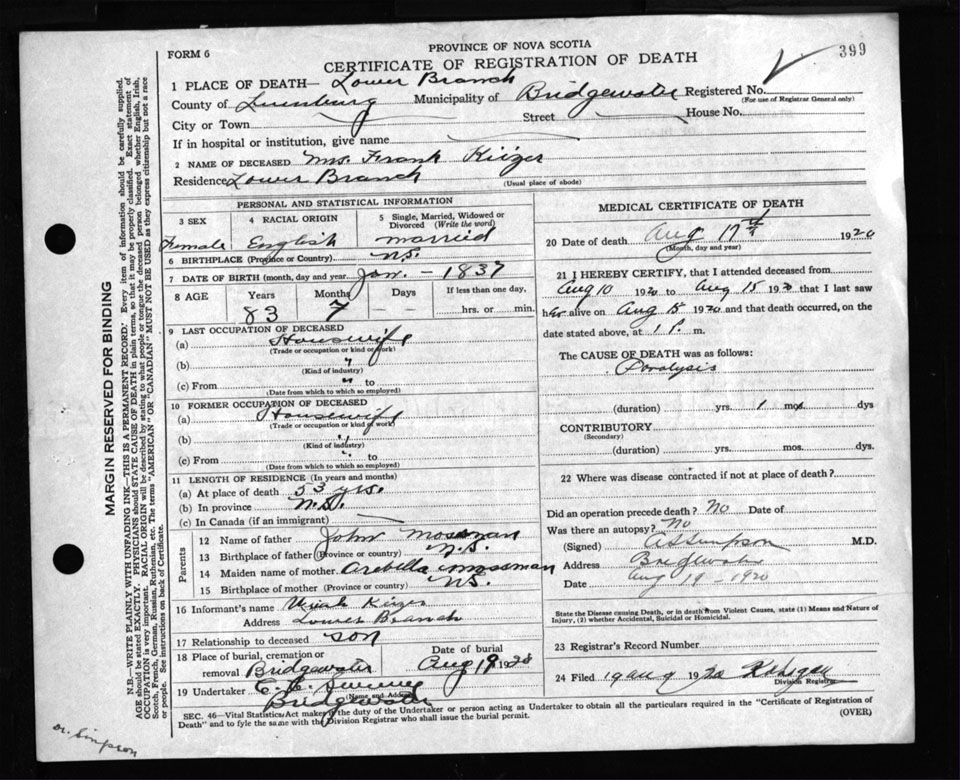 399
FORM 6
PROVINCE OF NOVA SCOTIA
CERTIFICATE OF REGISTRATION OF DEATH
1 PLACE OF DEATH— Lower Branch
County of Lunenburg Municipality of Bridgewater Registered No.
(For use of Registrar General only)
City or Town Street House No.
If in hospital or institution, give name
2 NAME OF DECEASED Mrs. Frank Keizer
Residence Lower Branch (Usual place of abode)
PERSONAL AND STATISTICAL INFORMATION
3 SEX 4 RACIAL ORIGIN 5 Single, Married, Widowed or Divorced (Write the word)
Female English married
6 BIRTHPLACE (Province or Country) N.S.
7 DATE OF BIRTH (month, day and year) Jan. - 1837
8 AGE Years Months Days If less than one day,
83 7 hrs. or min.
9 LAST OCCUPATION OF DECEASED
(a) Housewife
(Trade or occupation or kind of work)
(b) "
(Kind of industry)
(c) From " to
(Date from which to which so employed)
10 FORMER OCCUPATION OF DECEASED
(a) Housewife
(Trade or occupation or kind of work)
(b) "
(Kind of industry)
(c) From " to
(Date from which to which so employed)
11 LENGTH OF RESIDENCE (In years and months)
(a) At place of death 53 yrs.
(b) In province N.S.
(c) In Canada (if an immigrant)
Parents
12 Name of father John Mossman
13 Birthplace of father (Province or country) N.S.
14 Maiden name of mother Arebella Mossman
15 Birthplace of mother (Province or country) N.S.
16 Informant's name Uriah Keizer
Address Lower Branch
17 Relationship to deceased son
18 Place of burial, cremation or
removal Bridgewater Aug 19 1920
19 Undertaker E. C.
(Name and Address)
Bridgewater
MEDICAL CERTIFICATE OF DEATH
20 Date of death Aug 17th 1920
(Month, day and year)
21 I HEREBY CERTIFY, that I attended deceased from
Aug 10 1920 to Aug 15 1920 that I last saw
her alive on Aug 15 1920 and that death occurred, on the
date stated above, at 1 P. m.
The CAUSE OF DEATH was as follows:
Paralysis
(duration) yrs. 1 mos. dys
CONTRIBUTORY
(Secondary)
(duration) yrs. mos. dys.
22 Where was disease contracted if not at place of death?
Did an operation precede death? No Date of
Was there an autopsy? No
(Signed) Simpson M.D.
Address Bridgewater
Date Aug 19 - 1920
State the Disease causing Death, or in death from Violent Causes, state (1) Means and Nature of
Injury, (2) whether Accidental, Suicidal or Homicidal.
23 Registrar's Record Number
24 Filed 19 aug 1920
Division Registrar
SEC. 46—Vital Statistics Act makes it the duty of the Undertaker or person acting as Undertaker to obtain all the particulars required in the "Certificate of Registration of
Death" and to fyle the same with the Division Registrar who shall issue the burial permit.
(OVER)
MARGIN RESERVED FOR BINDING
N.B.—WRITE PLAINLY WITH UNFADING INK—THIS IS A PERMANENT RECORD: Every item of information should be carefully supplied.
AGE should be stated EXACTLY. PHYSICIANS should STATE CAUSE OF DEATH in plain terms, so that it may be properly classified. Exact statement of
OCCUPATION is very important. RACIAL ORIGIN will be described by stating to what people or tongue the deceased person belonged whether English, Irish,
Scotch, French, German, Russian, Ruthenian, etc. The terms "AMERICAN" OR "CANADIAN" MUST NOT BE USED as they express citizenship but not a race
or people. See instructions on back of Certificate.
Dr. Simpson